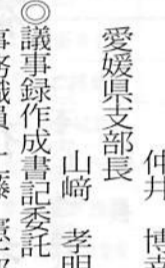 仲井 博
愛媛県支部長
山﨑 孝明
◎議事録作成書記委託
事務職員